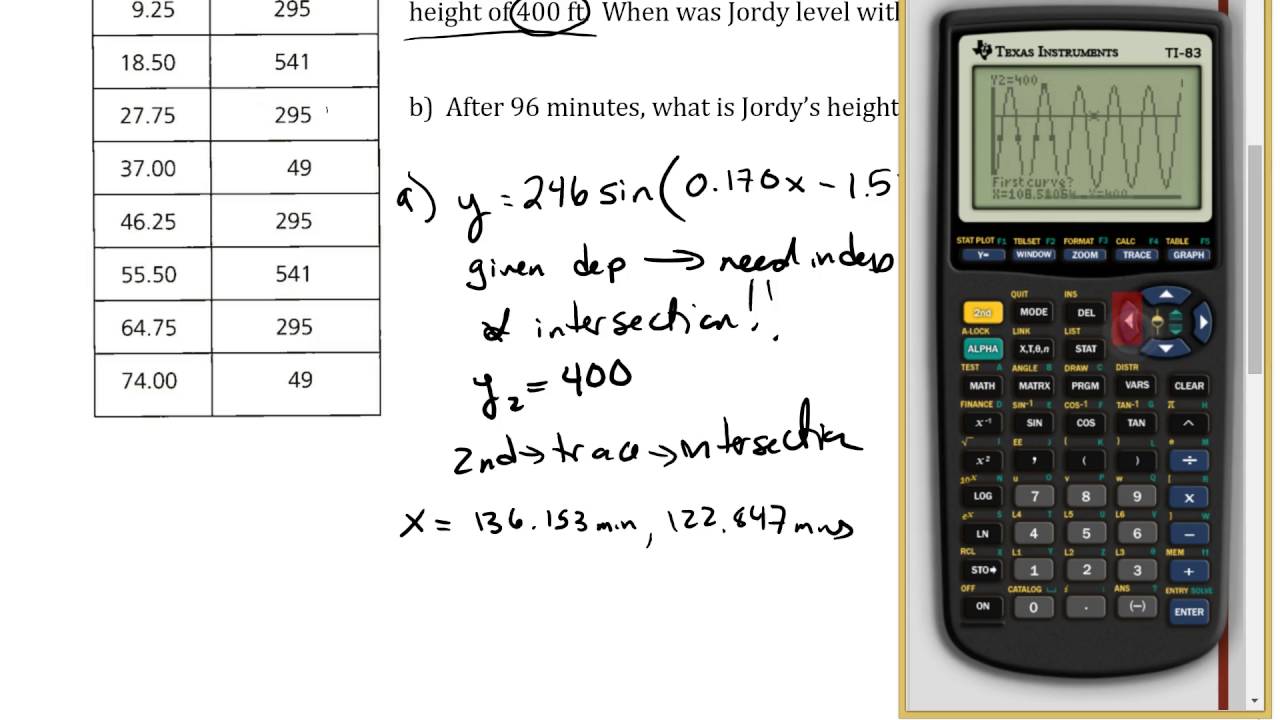 9.25 295
18.50 541
27.75 295
37.00 49
46.25 295
55.50 541
64.75 295
74.00 49
height of 400 ft. When was Jordy level wit
b) After 96 minutes, what is Jordy's height
a) y = 246 sin(0.170x - 1.5
given dep → need indep
intersection!!
y2 = 400
2nd → trace → intersection
x = 136.153 min, 122.847 mins
TEXAS INSTRUMENTS TI-83
Y2=400
First curve?
STAT PLOT F1 TBLSET F2 FORMAT F3 CALC F4 TABLE F5
Y= WINDOW ZOOM TRACE GRAPH
QUIT INS
2nd MODE DEL
A-LOCK LINK LIST
ALPHA X,T,θ,n STAT
TEST A ANGLE B DRAW C DISTR
MATH MATRX PRGM VARS CLEAR
FINANCE D SIN-1 E COS-1 F TAN-1 G π H
x-1 SIN COS TAN ^
√ I EE J ( K ) L e M
x² , ( ) ÷
10x N u O v P w Q [ R
LOG 7 8 9 x
ex S L4 T L5 U L6 V ] W
LN 4 5 6 −
RCL X L1 Y L2 Z L3 θ MEM "
STO➔ 1 2 3 +
OFF CATALOG i : ANS ? ENTRY SOLVE
ON 0 . (−) ENTER